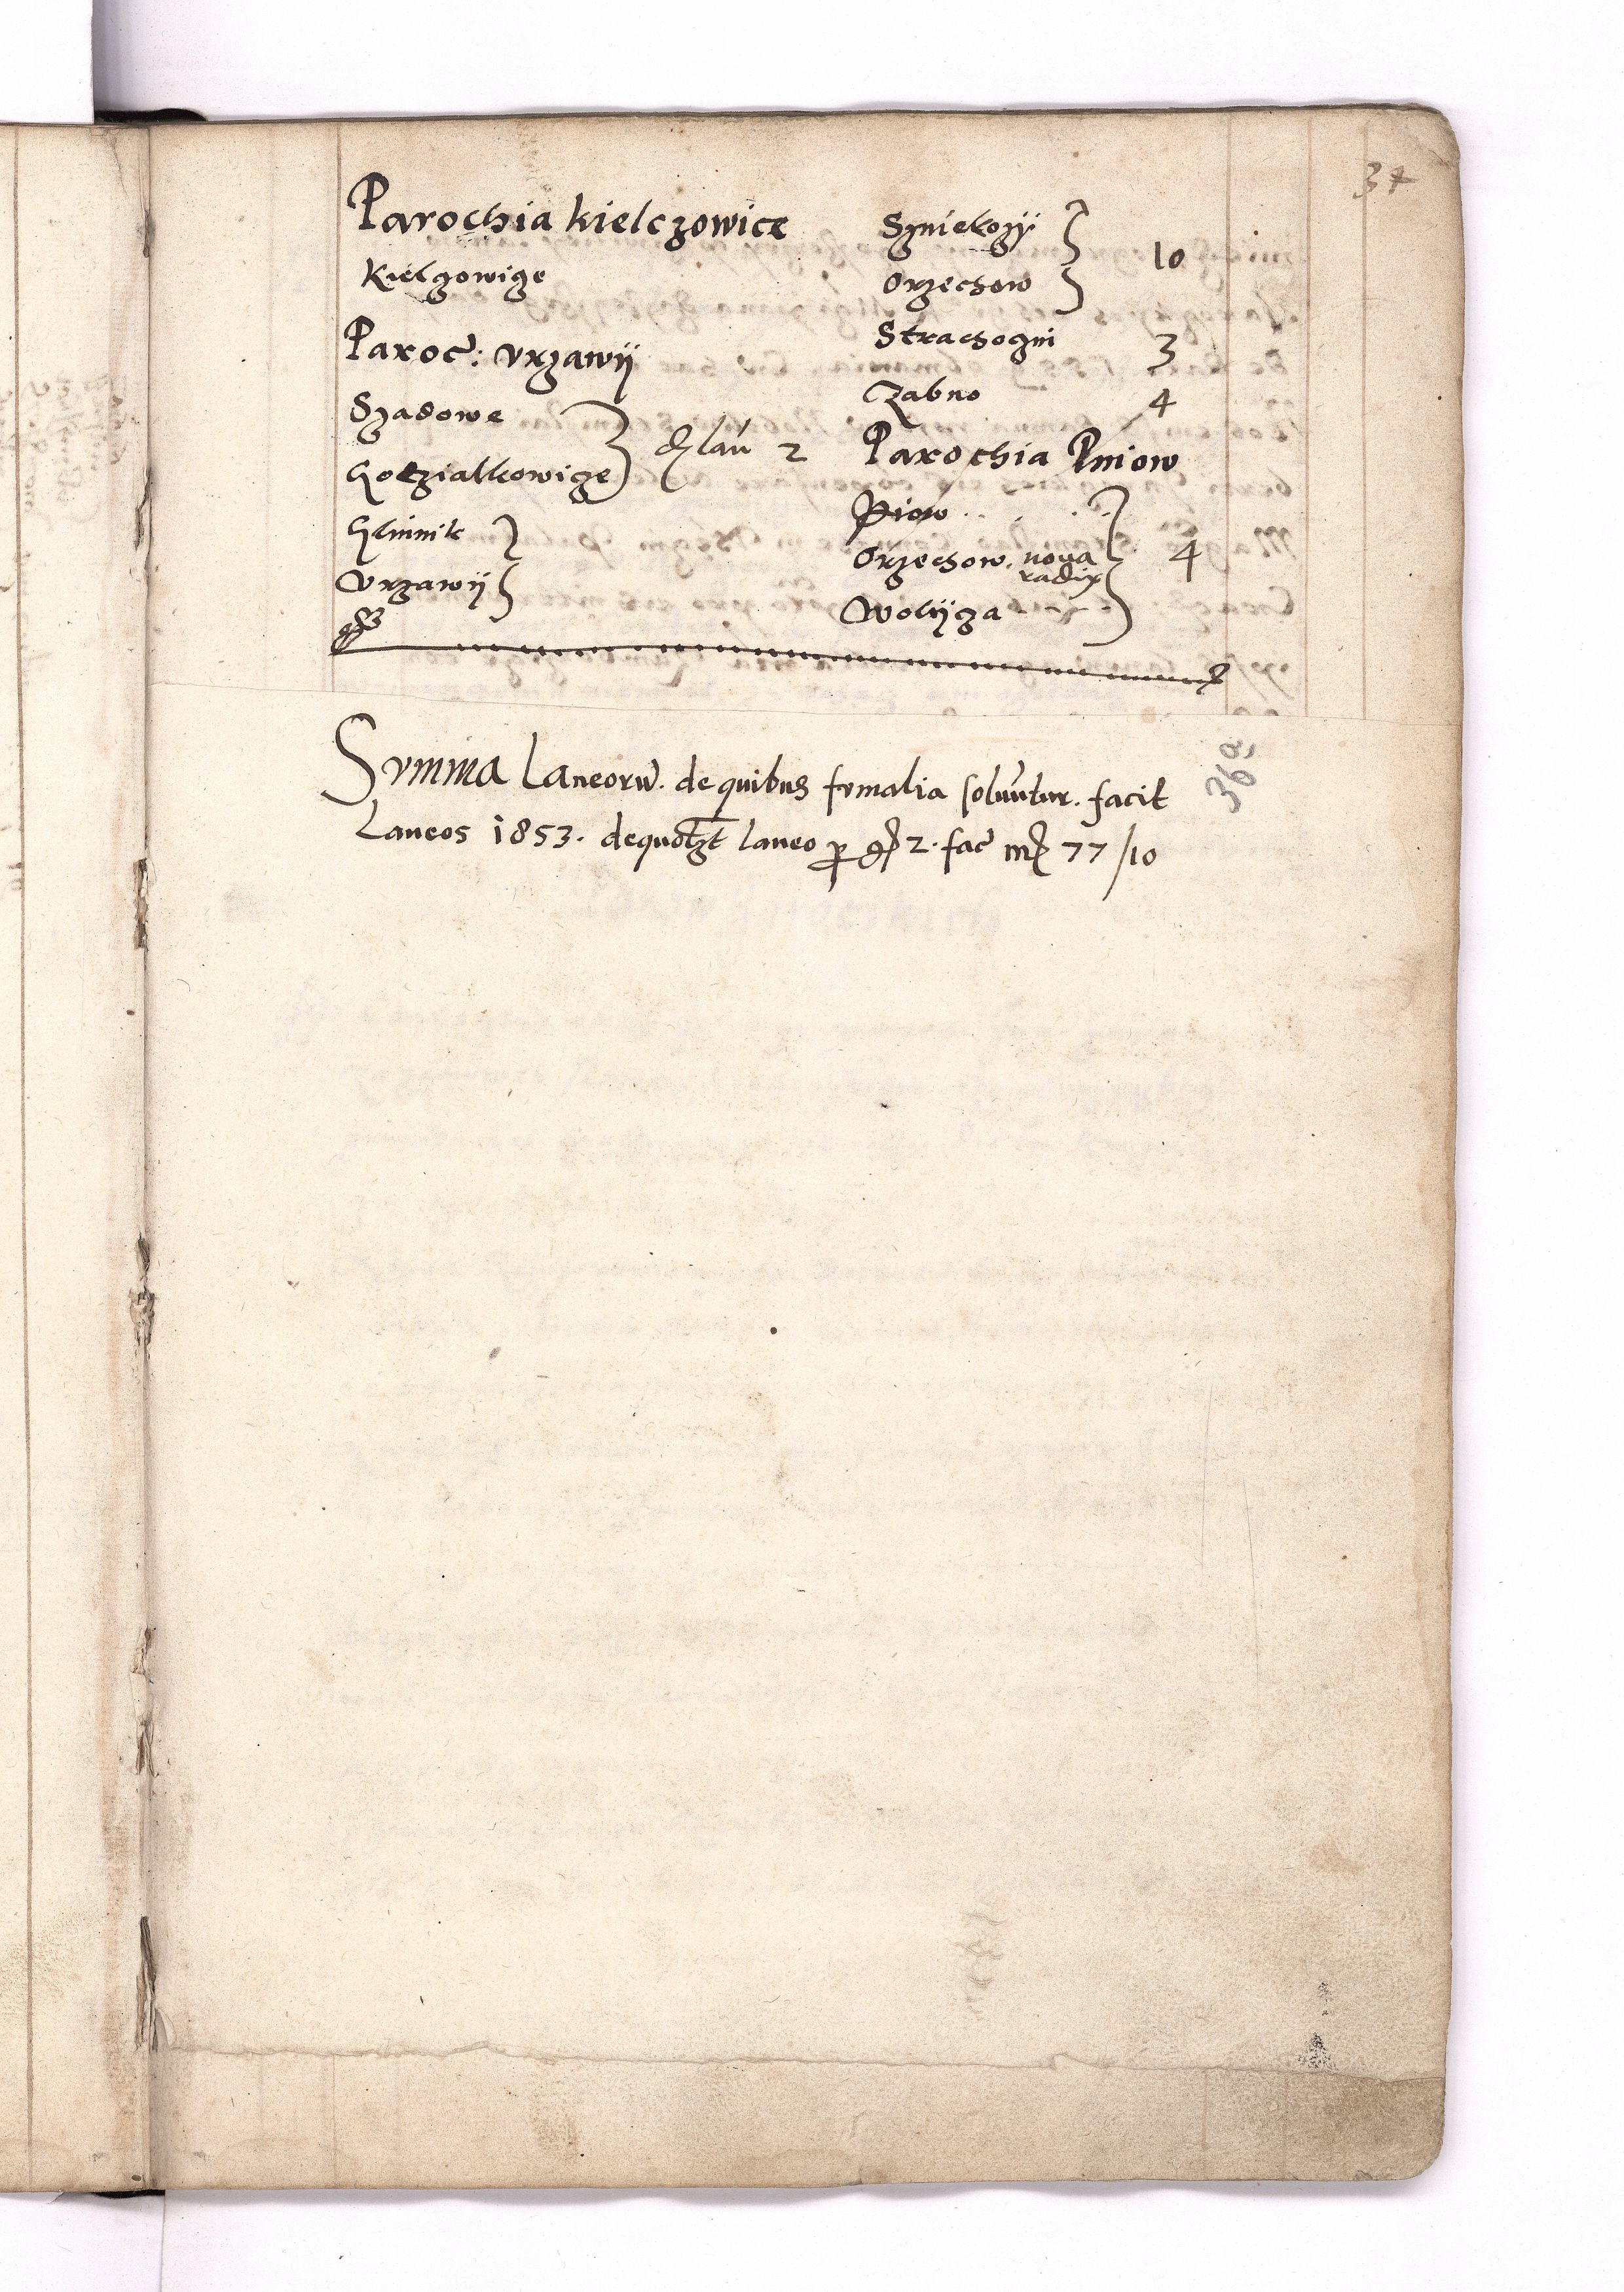 37
Parochia kielczowice
Kielczowicze
Paroc: vrzawij
Szadowe
2
Chmik
vrzawij
Orzechow
10
Strachoczin
3
Zabno
4
Parochia Pniow
Pniow
Orzechow. noua
radix
4
Wolijcza
Summa Laneorũ. de quibus fumalia soluuntur. facit
Laneos 1853. de quolzt laneo p gr 2. fac̃ mr 77/10
369